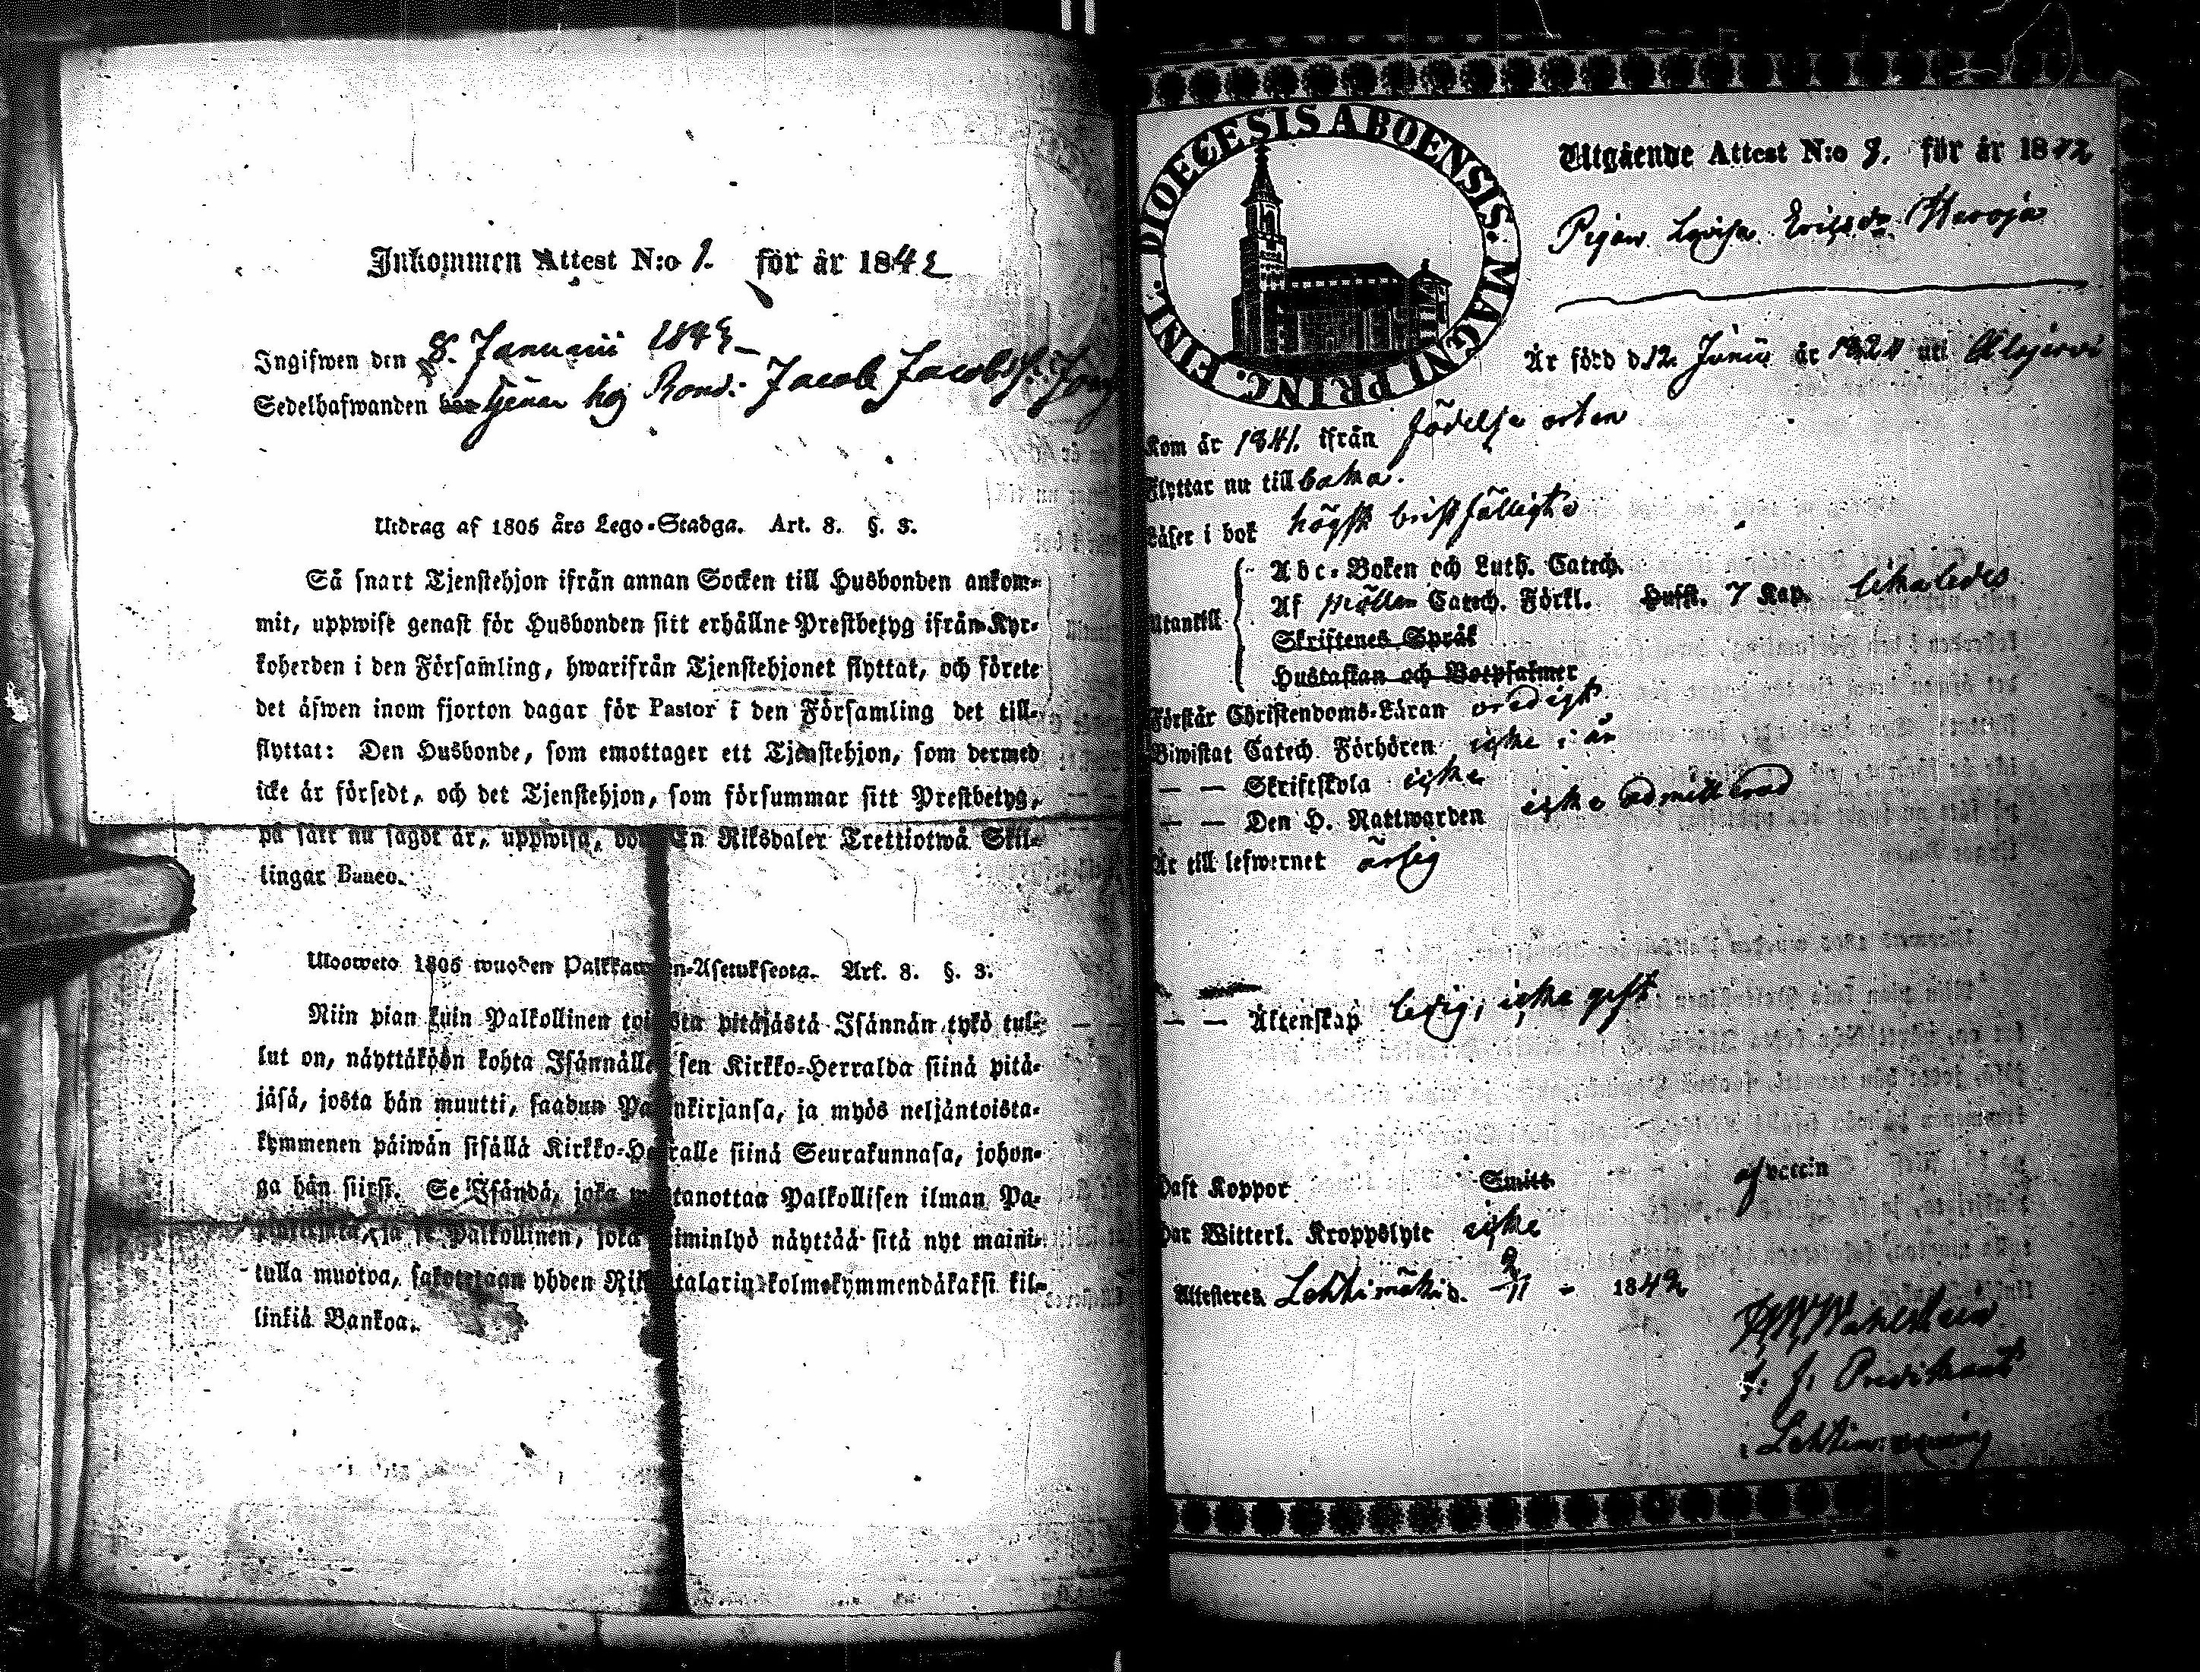 Inkommen Attest N:o 1. för år 1842
Ingifwen den 8. Januarii 184
Sedelhafwanden tjenar hos Bond: Jacob Jacobss:
Utdrag af 1805 års Lego-Stadga. Art. 3. §. 3.
Så snart Tjenstehjon ifrån annan Socken till Husbonden ankom-
mit, uppwise genast för Husbonden sitt erhållne Prestbetyg ifrån Kyr-
koherden i den Församling, hwarifrån Tjenstehjonet flyttat, och förete
det äfwen inom fjorton dagar för Pastor i den Församling det till-
flyttat: Den Husbonde, som emottager ett Tjenstehjon, som dermed
icke är försedt, och det Tjenstehjon, som försummar sitt Prestbetyg,
på sätt nu sagdt är, uppwisa, En Riksdaler Trettiotwå Skil-
lingar Banco.
Ulosweto 1805 wuoden Palkkawäen-Asetuksesta. Art. 3. §. 3.
Niin pian kuin Palkollinen toisesta pitäjästä Isännän tykö tul-
lut on, näyttäköön kohta Isännälle sen Kirkko-Herralda siinä pitä-
jäsä, josta hän muutti, saadun Papinkirjansa, ja myös neljäntoista-
kymmenen päiwän sisällä Kirkko-Herralle siinä Seurakunnasa, johon-
ga hän siirst. Se Isändä, joka wastanottaa Palkollisen ilman Pa-
pinkirjata, ja se Palkollinen, joka laiminlyö näyttää sitä nyt maini-
tulla muotoa, sakotetaan yhden Rikintalarin kolmekymmendäkaksi kil-
linkiä Bankoa.
DIOECESIS ABOENSIS. MAGNI PRINC. FINL.
Utgående Attest N:o för år 1842
Pigan Lovisa Ericsdr
Är född d. 12. Junii år 182 uti Alajervi
Kom år 1841. ifrån födelse orten
Flyttar nu tillbaka.
Läser i bok högst bristfälligt
Utantill
Abc-Boken och Luth. Catech.
Af Möllers Catech. Förkl. Husst. 7 Kap. likaledes
Skriftenes Språk
Hustaflan och Botpsalmer
Förstår Christendoms-Läran oredigt
Biwistat Catech. Förhören icke i år
— — Skriftskola icke
— — Den H. Nattwarden icke admitterad
Är till lefwernet ärlig
— — Äktenskap ledig, icke gift
Haft Koppor Smitt. af vaccin
Har Witterl. Kroppslyte icke
Attesteres Lehtimäki d. 2/11 - 1842
Predikant
i Lehtimäki